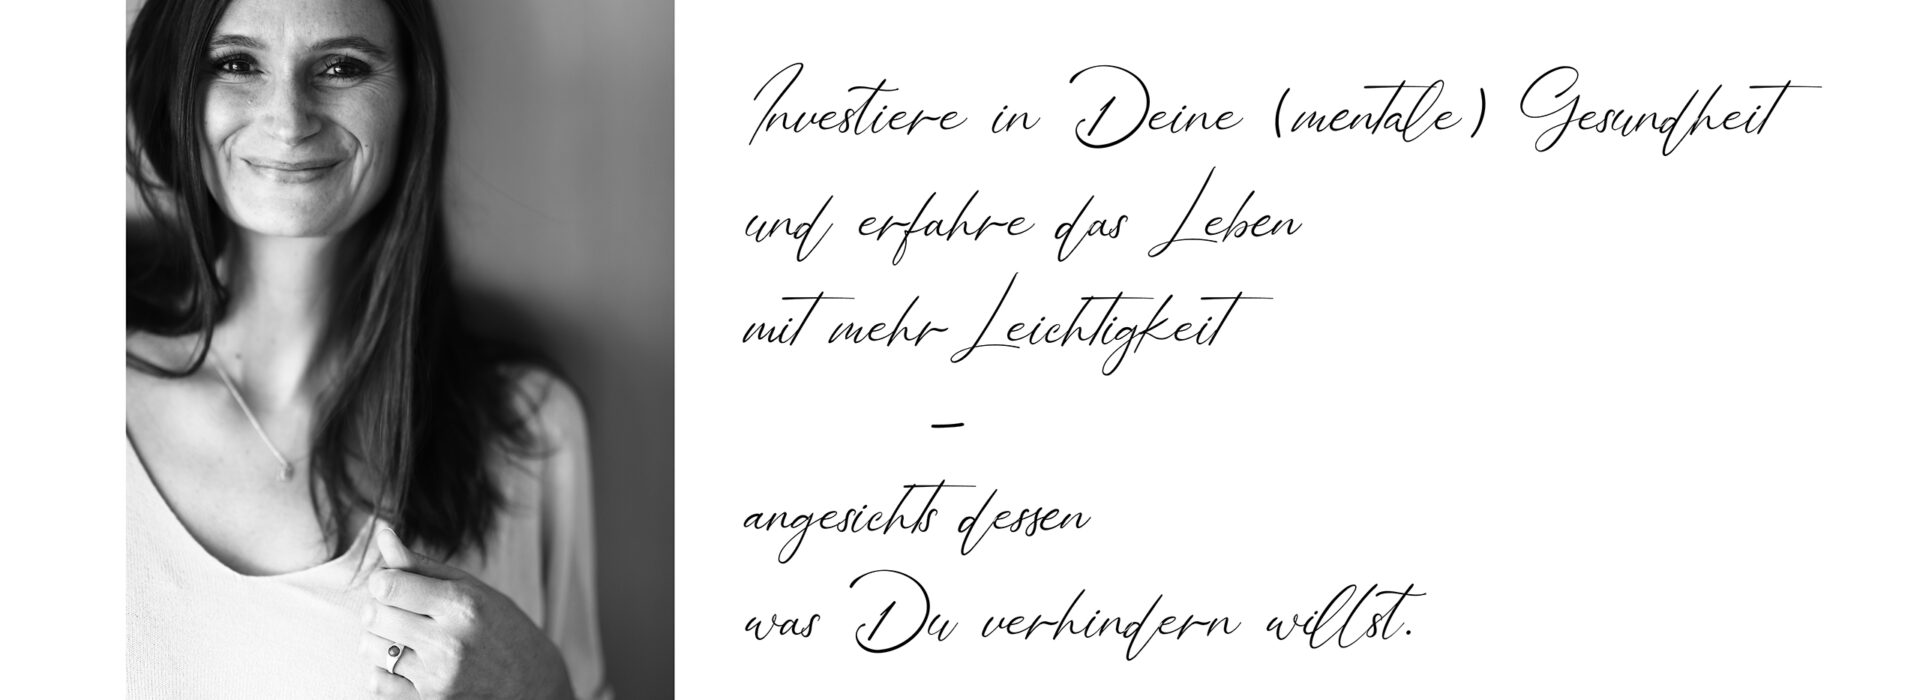 Investiere in Deine (mentale) Gesundheit
und erfahre das Leben
mit mehr Leichtigkeit
–
angesichts dessen
was Du verhindern willst.